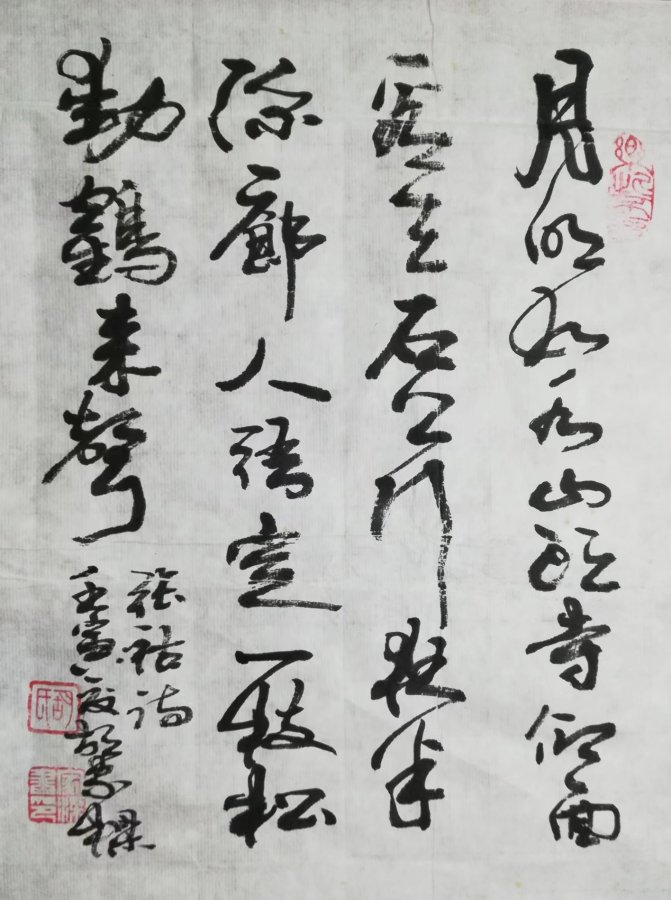 月明如水山頭寺仰面
看天石上行夜半
深廊人語定一枝松
動鶴來聲
張祜詩
壬寅夏